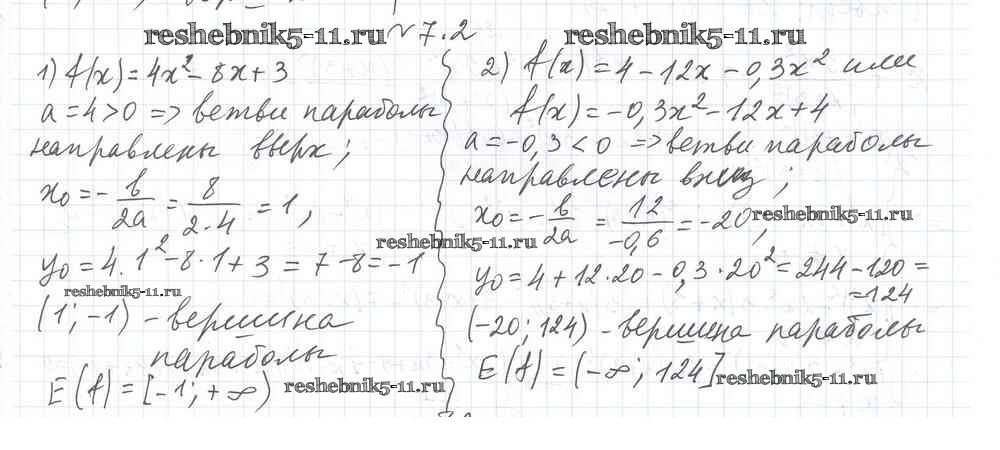 reshebnik5-11.ru № 7.2 reshebnik5-11.ru
1) f(x) = 4x² - 8x + 3
a = 4 > 0 => ветви параболы
направлены вверх;
x₀ = - b/2a = 8/2·4 = 1,
y₀ = 4·1² - 8·1 + 3 = 7 - 8 = -1
reshebnik5-11.ru
(1; -1) - вершина
параболы
E(f) = [-1; +∞) reshebnik5-11.ru
2) f(x) = 4 - 12x - 0,3x² или
f(x) = -0,3x² - 12x + 4
a = -0,3 < 0 => ветви параболы
направлены вниз;
x₀ = - b/2a = 12/-0,6 = -20, reshebnik5-11.ru
reshebnik5-11.ru
y₀ = 4 + 12·20 - 0,3·20² = 244 - 120 =
= 124
(-20; 124) - вершина параболы
E(f) = (-∞; 124] reshebnik5-11.ru